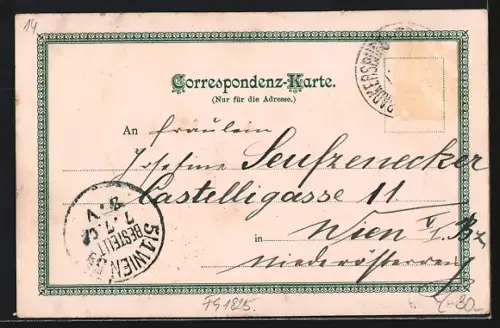 14
Correspondenz-Karte.
(Nur für die Adresse.)
RADKERSBURG
An Fräulein
Josefine Seufzenecker
Castelligasse 11
in Wien V/1. Bz
Niederösterreich
5/1 WIEN
BESTELLT
FS1825.